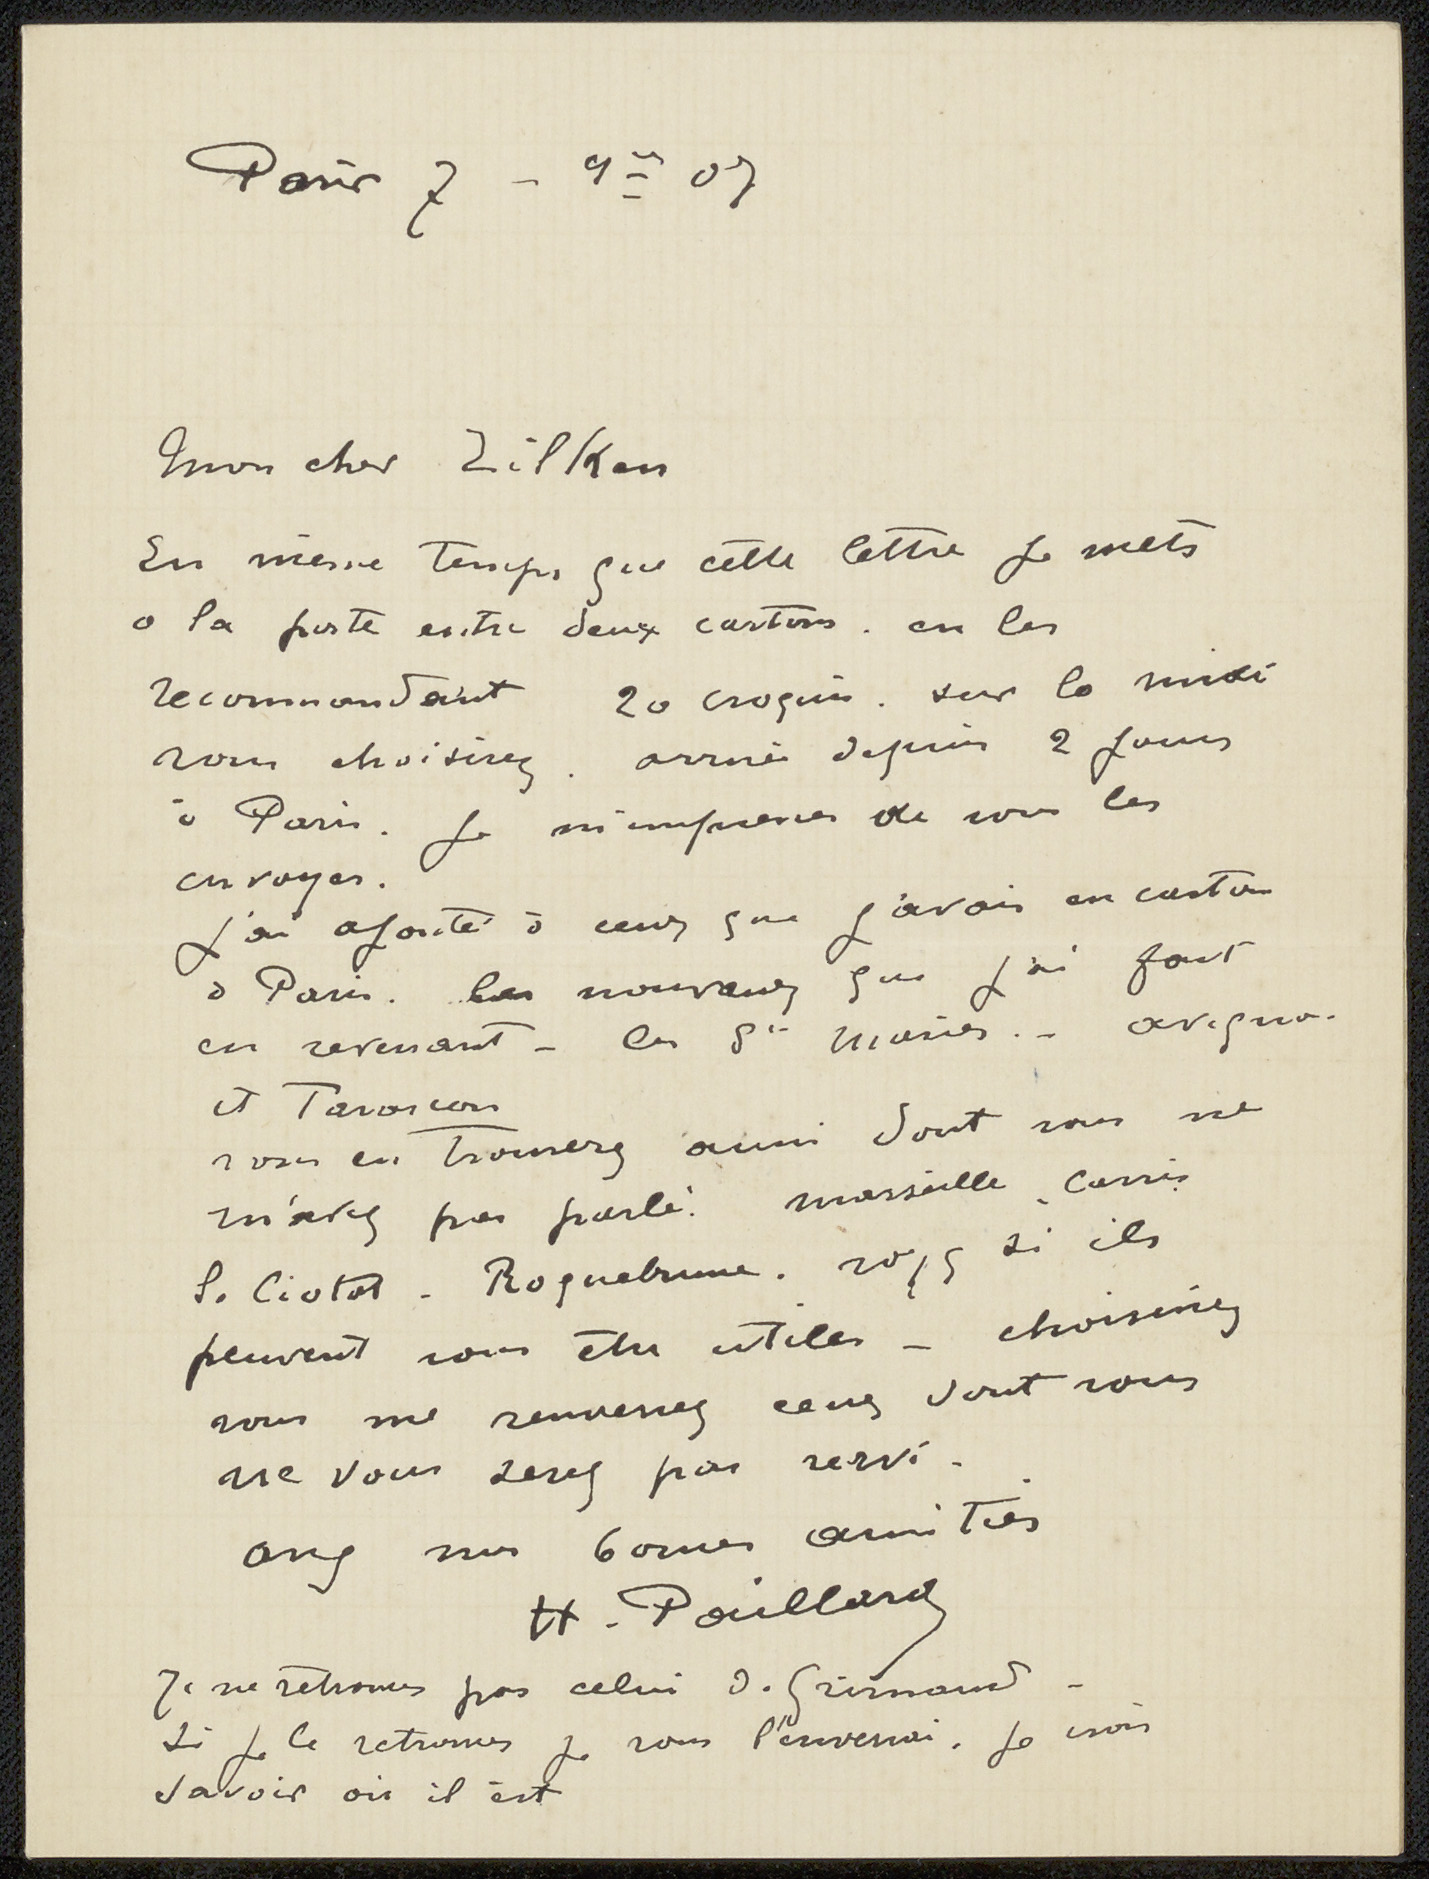 Paris 7 - 9re 07
Mon cher Zilken
En même temps que cette lettre je mets
a la poste entre deux cartons. en les
recommandant 20 croquis. sur le midi
vous choisirez. arrivé depuis 2 jours
à Paris. Je m'empresse de vous les
envoyer.
J'ai ajouté à ceux que j'avais en carton
à Paris. les nouveaux que j'ai fait
en revenant - les Stes Maries. - Avignon
et Tarascon
vous en trouverez aussi dont vous ne
m'avez pas parlé. Marseille.
la Ciotat - Roquebrune. voyez si ils
peuvent vous être utiles - choisissez
vous me renverrez ceux dont vous
ne vous serez pas servi.
avec nos bonnes amitiés
H. Paillard
Je ne retrouve pas celui de Grimaud -
si je le retrouve je vous l'enverrai. Je crois
savoir où il est